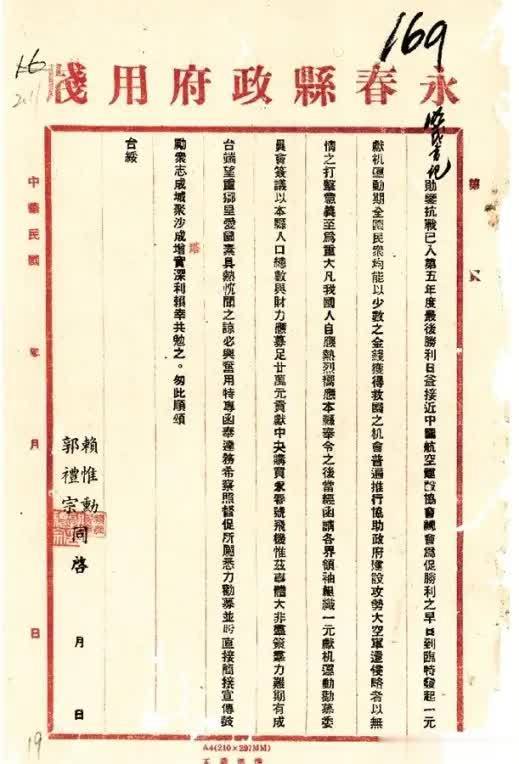 169
16
永春縣政府用箋
第 頁
勛鑒抗戰已入第五年度最後勝利日益接近中國航空建設協會總會為促勝利之早日到臨特發起一元
獻机運動期全國民衆均能以少數之金錢獲得救國之机會普遍推行協助政府建設攻勢大空軍還侵略者以無
情之打擊意義至為重大凡我國人自應熱烈響應本縣奉令之後當經函請各界領袖組織一元獻机運動勸募委
員會簽議以本縣人口總數與財力應募足廿萬元貢獻中央購買永春號飛機惟茲事體大非羣策羣力難期有成
台端望重鄉里愛國素具熱忱聞之諒必興奮用特專函奉達務希察照督促所屬悉力勸募並盼直接間接宣傳鼓
勵衆志成城聚沙成塔實深利賴幸共勉之。匆此順頌
台綏
塔
賴惟勳
郭禮宗 同啓
月 日
中華民國 年 月 日
19
A4(210×297MM)